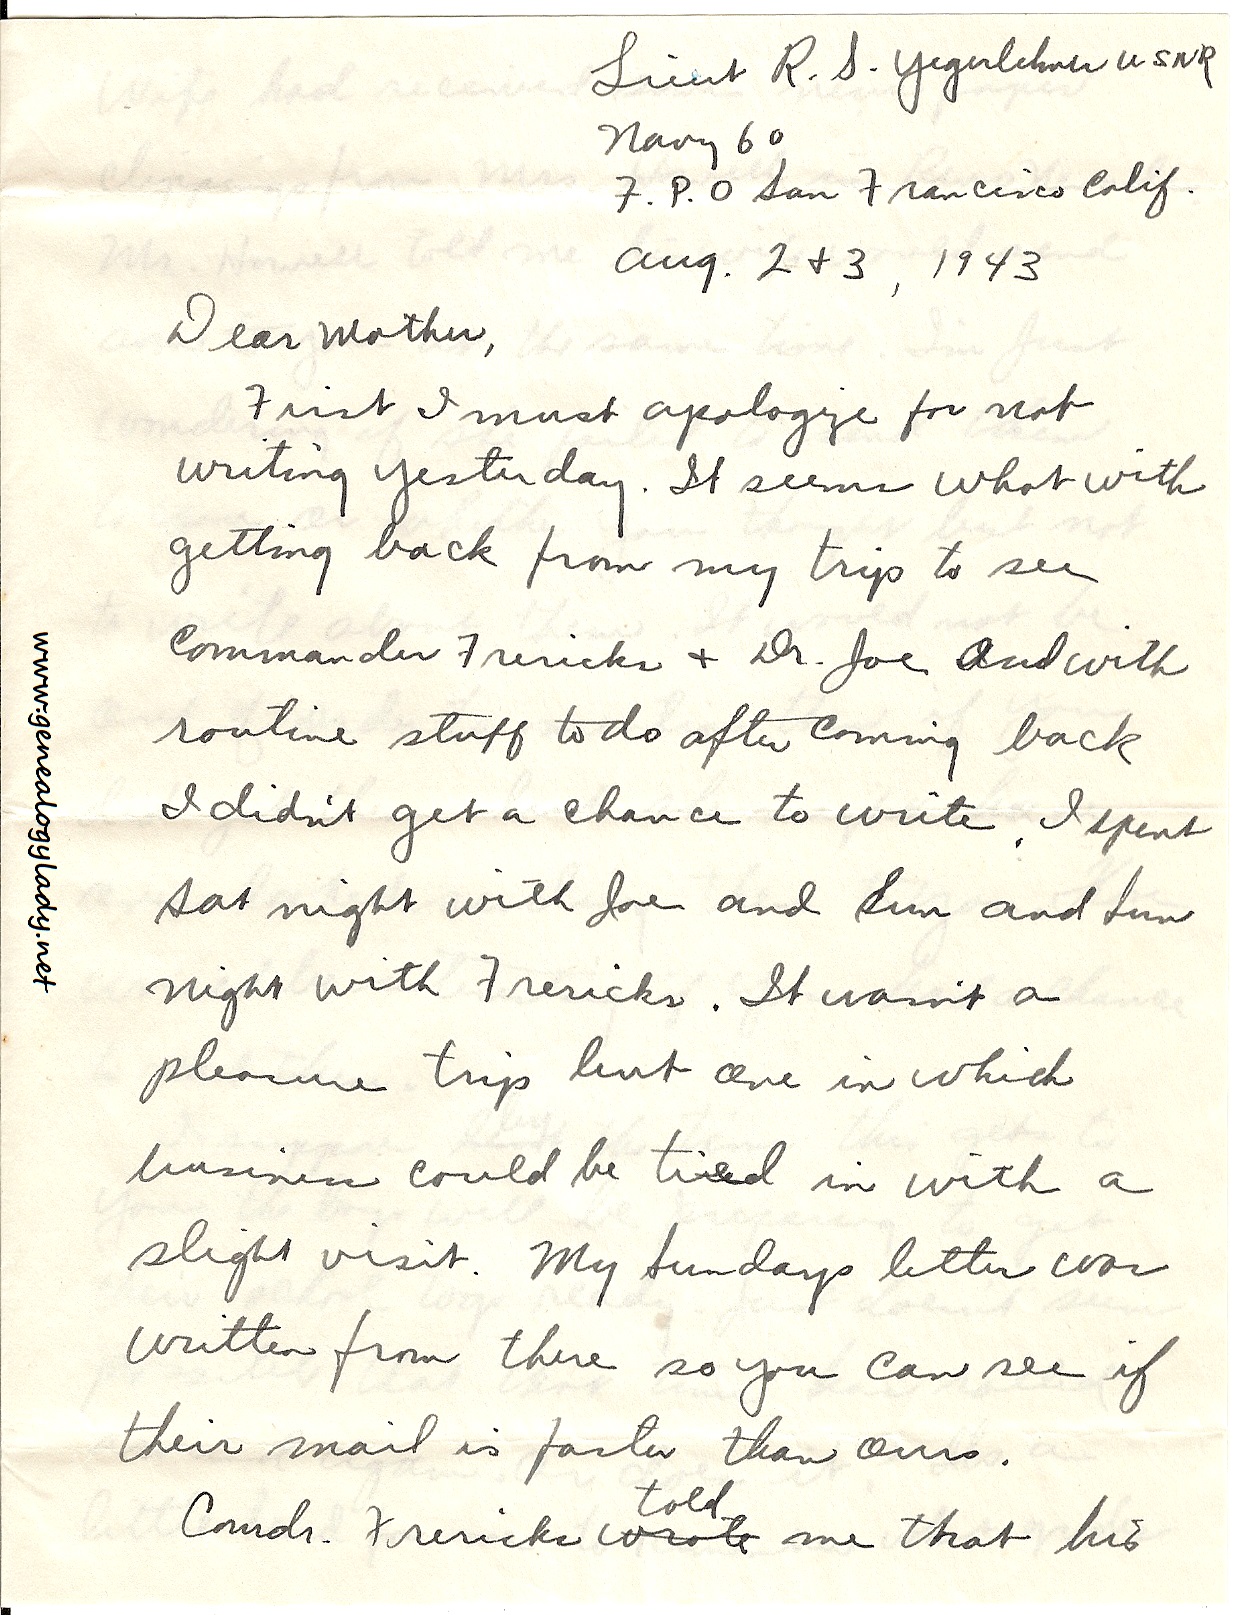 Lieut R. S. Yegerlehner USNR
Navy 60
F. P. O San Francisco Calif.
Aug. 2 + 3, 1943
Dear Mother,
First I must apologize for not
writing yesterday. It seems what with
getting back from my trip to see
Commander Frericks + Dr. Joe and with
routine stuff to do after coming back
I didn't get a chance to write. I spent
Sat night with Joe and Sun and Sun
night with Frericks. It wasn't a
pleasure trip but one in which
business could be tied in with a
slight visit. My Sundays letter was
written from there so you can see if
their mail is faster than ours.
told
Comdr. Frericks wrote me that his
www.genealogylady.net